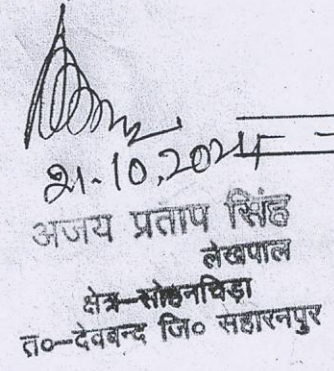 21.10.2024
अजय प्रताप सिंह
लेखपाल
क्षेत्र-सोहनचिड़ा
त०-देवबन्द जि० सहारनपुर